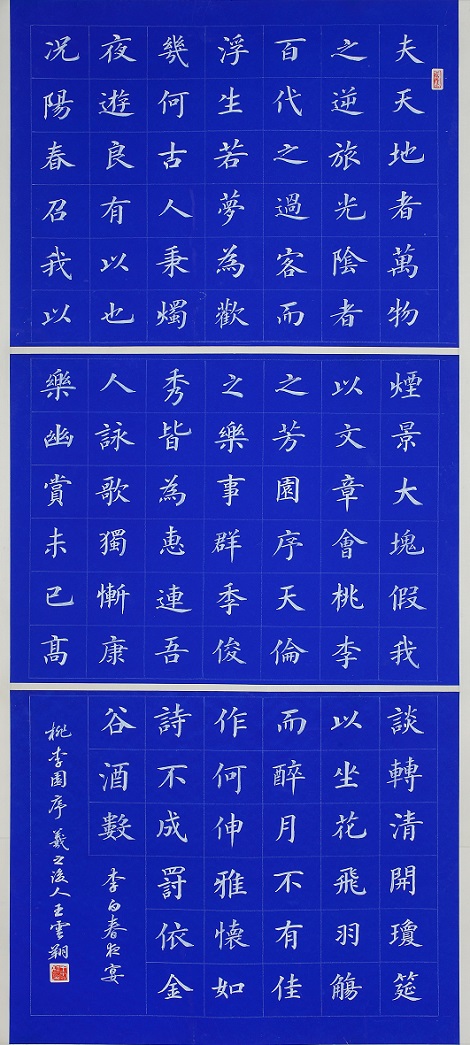 夫天地者萬物
之逆旅光陰者
百代之過客而
浮生若夢為歡
幾何古人秉燭
夜遊良有以也
况陽春召我以
煙景大塊假我
以文章會桃李
之芳園序天倫
之樂事群季俊
秀皆為惠連吾
人詠歌獨慚康
樂幽賞未已髙
談轉清開瓊筵
以坐花飛羽觴
而醉月不有佳
作何伸雅懷如
詩不成罸依金
谷酒數 李白春夜宴
桃李園序 羲之後人王雲翔